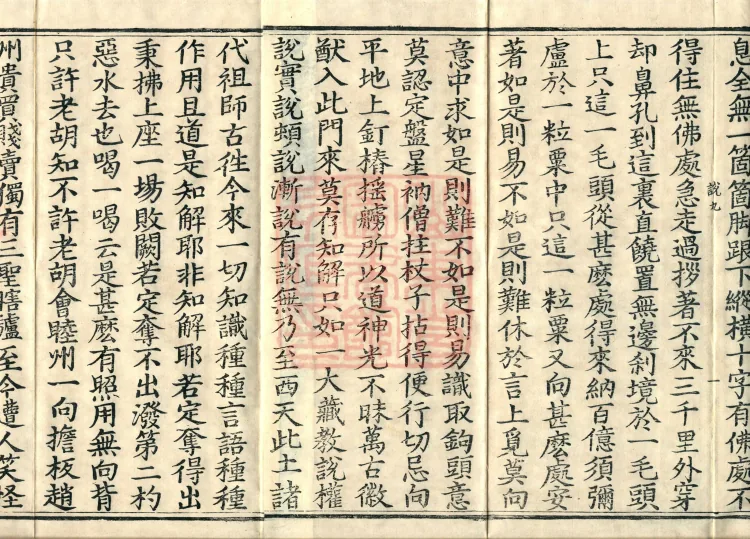 息全無一箇箇脚跟下縱橫十字有佛處不
說九
一
得住無佛處急走過拶著不來三千里外穿
却鼻孔到這裏直饒置無邊刹境於一毛頭
上只這一毛頭從甚麽處得來納百億須彌
盧於一粒粟中只這一粒粟又向甚麽處安
著如是則易不如是則難休於言上覓莫向
意中求如是則難不如是則易識取鉤頭意
莫認定盤星衲僧拄杖子拈得便行切忌向
平地上釘樁搖艣所以道神光不昧萬古徽
猷入此門來莫存知解只如一大藏教說權
說實說頓說漸說有說無乃至西天此土諸
代祖師古徃今來一切知識種種言語種種
作用且道是知解耶非知解耶若定奪得出
秉拂上座一場敗闕若定奪不出潑第二杓
惡水去也喝一喝云是甚麽有照用無向背
只許老胡知不許老胡會睦州一向擔板趙
州貴買賤賣獨有三聖瞎驢至今遭人笑怪